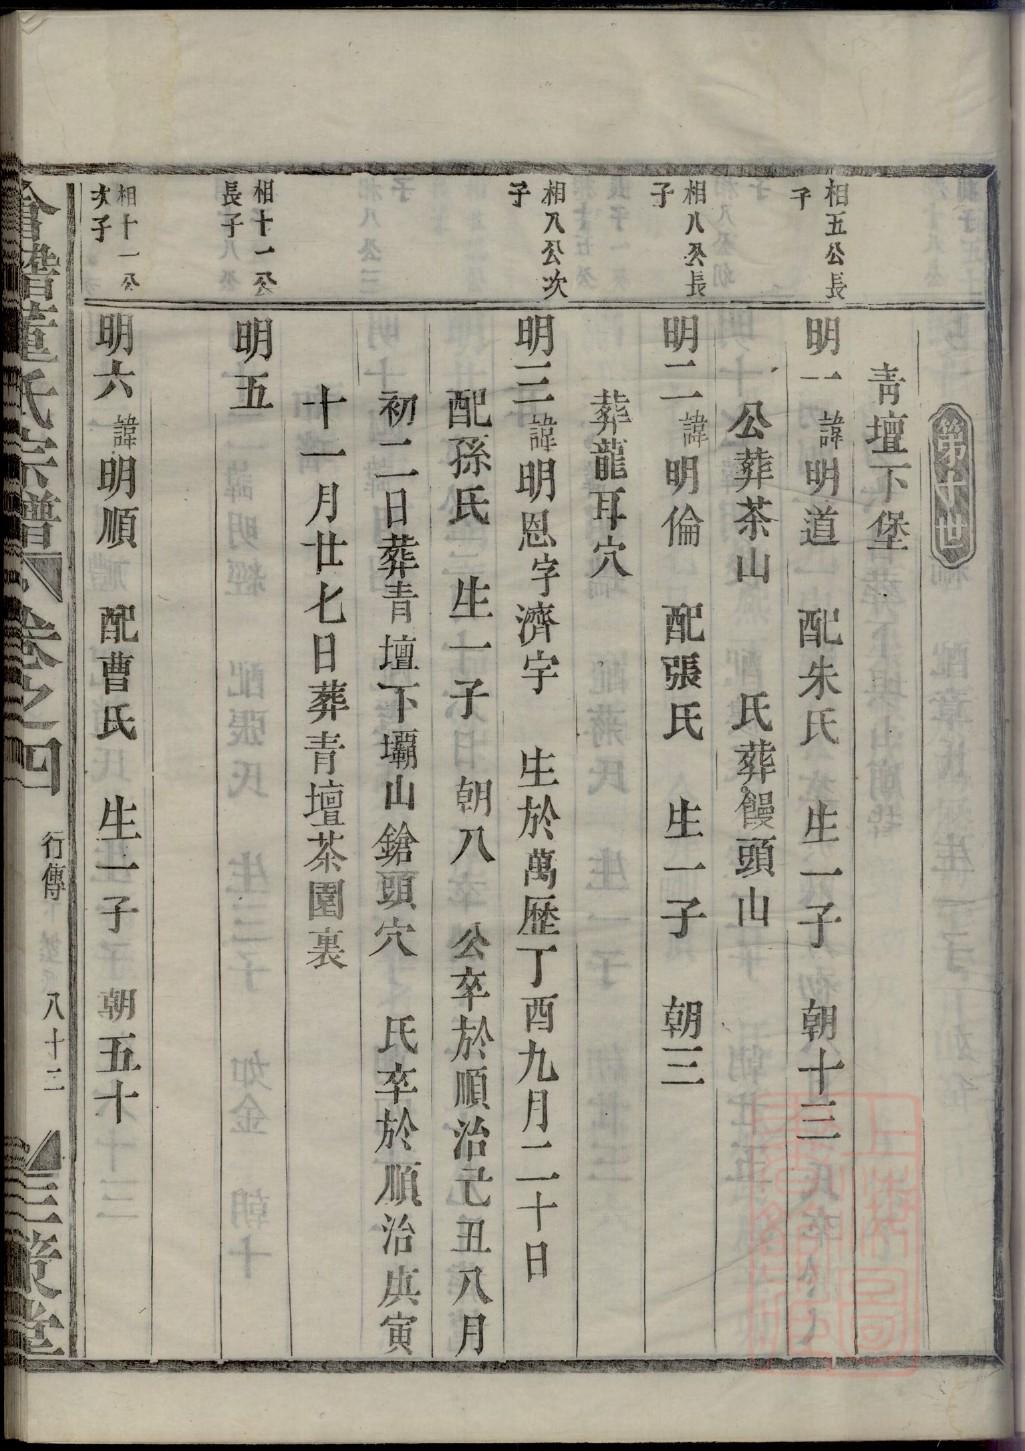 第十世
青壇下堡
相五公長子
明一諱明道 配朱氏 生一子 朝十三
公葬茶山 氏葬饅頭山
相八公長子
明二諱明倫 配張氏 生一子 朝三
葬龍耳穴
相八公次子
明三諱明恩字濟宇 生於萬歴丁酉九月二十日
配孫氏 生一子 朝八 公卒於順治己丑八月
初二日葬青壇下壩山鎗頭穴 氏卒於順治庚寅
十一月廿七日葬青壇茶園裏
相十一公長子
明五
相十一公次子
明六諱明順 配曹氏 生一子 朝五十
會稽董氏宗譜 卷之四 行傳 八十二 三策堂